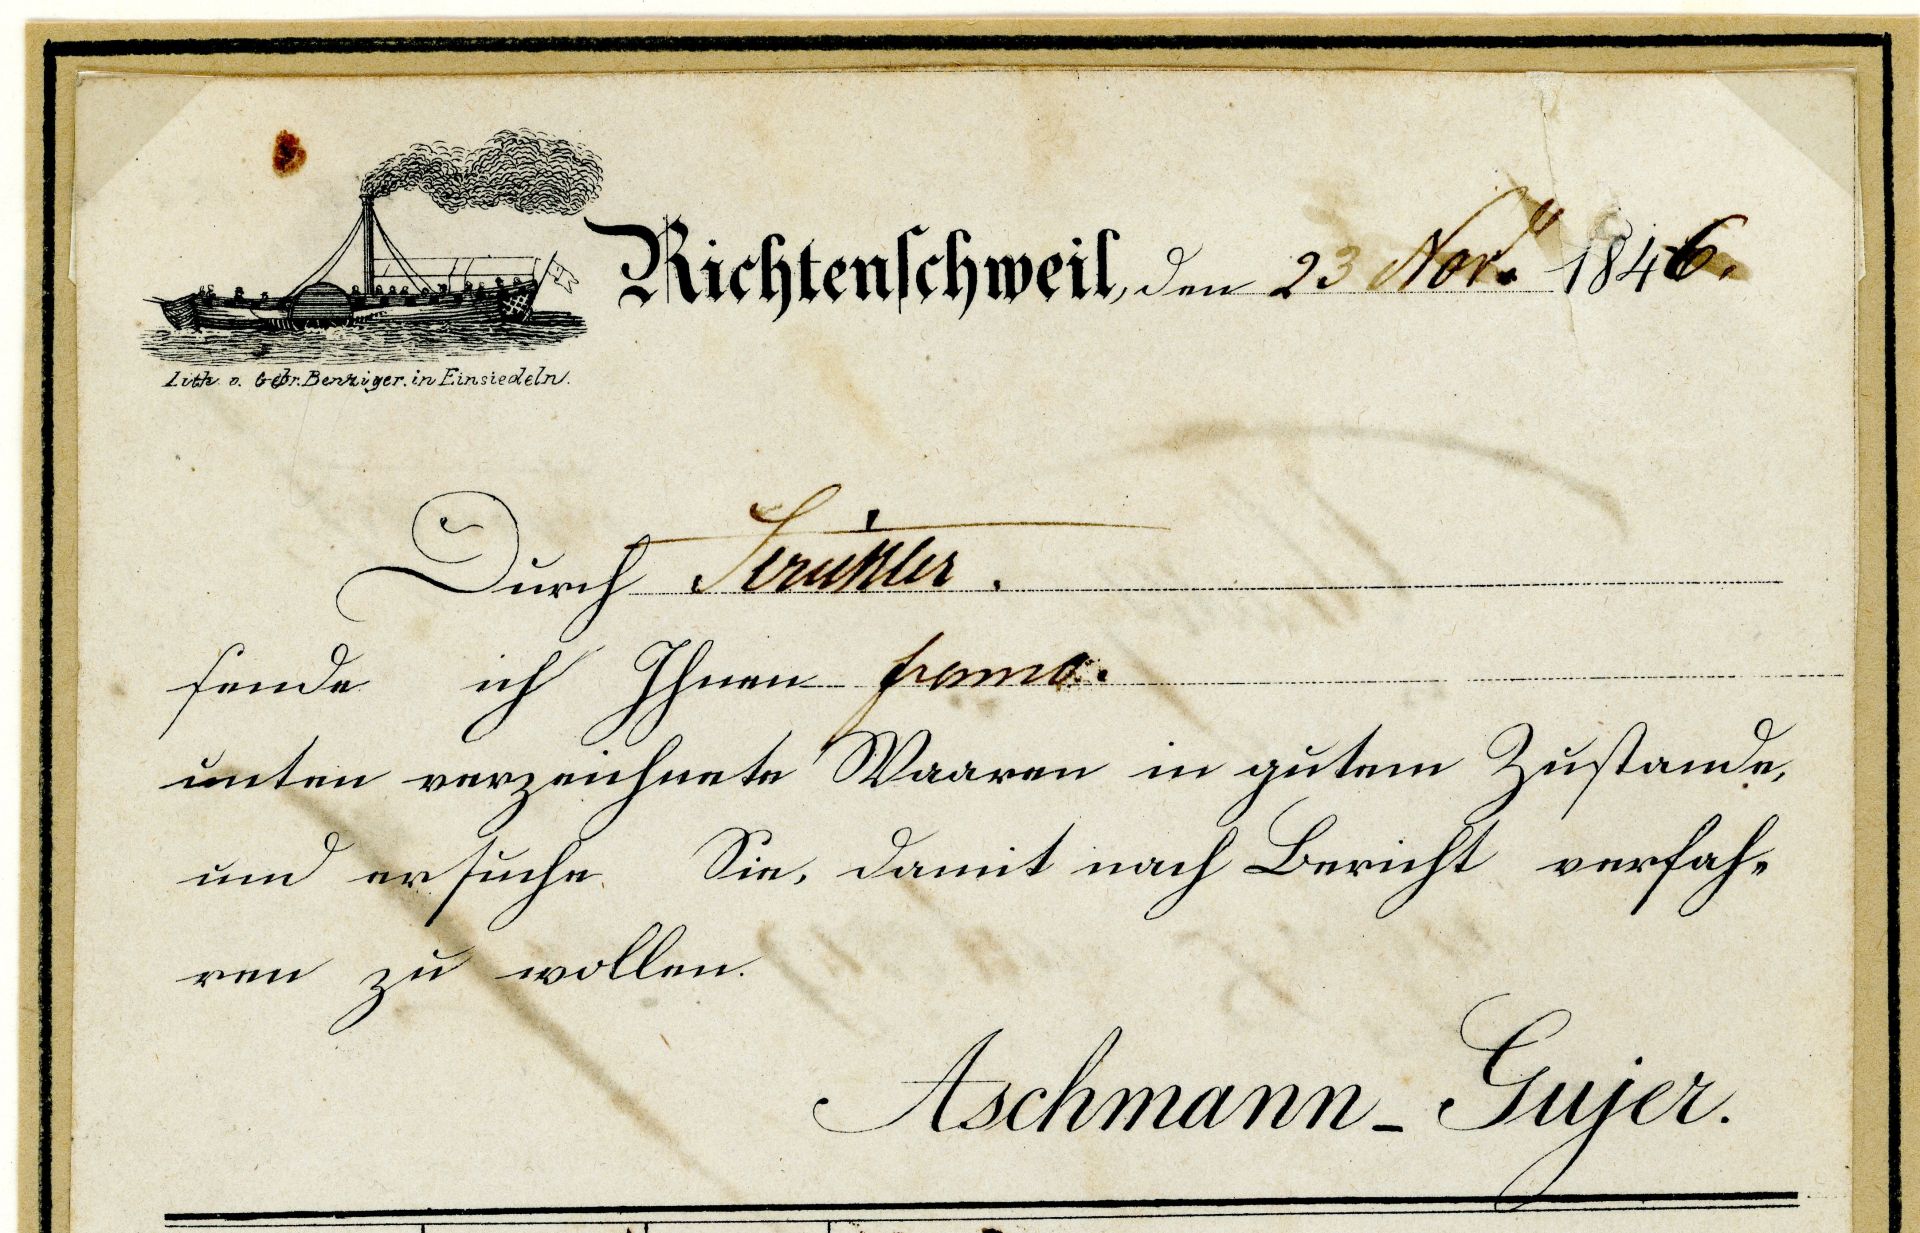 Richtenschweil, den 23 Nov.r 1846.
Lith. v. Gebr. Benziger. in Einsiedeln.
Durch
sende ich Ihnen franco.
unten verzeichnete Waaren in gutem Zustande,
und ersuche Sie, damit nach Bericht verfah-
ren zu wollen.
Aschmann-Gujer.